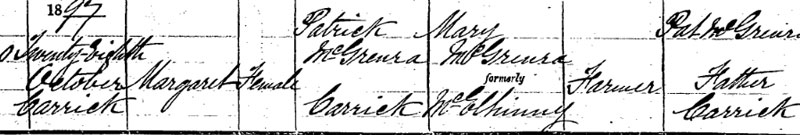 1897
Patrick Mary Pat McGrenra
Twenty-Eighth McGrenra McGrenra
formerly
October Margaret Female Farmer Father
Carrick Carrick McElhinny Carrick